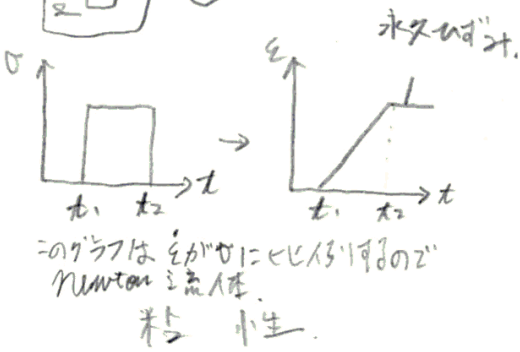 2
永久ひずみ.
σ
ε
t
t
t₁
t₂
t₁
t₂
このグラフは ε̇がσにヒレイするので
Newton 流体.
粘 性.